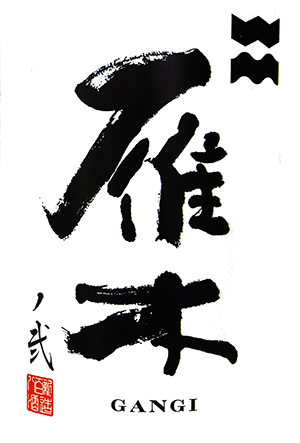 雁木
ノ弐
GANGI